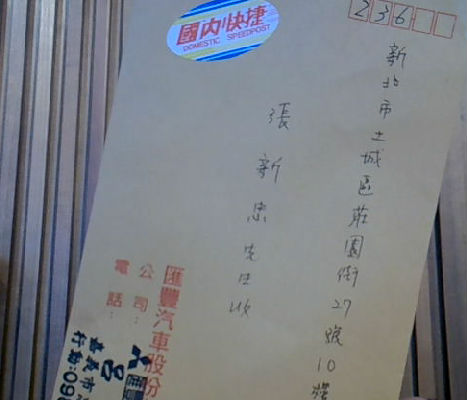 國內快捷
DOMESTIC SPEEDPOST
236
新北市土城區莊園街27號10樓
張新忠先生收
匯豐汽車股份
公司:
電話:
嘉義市
行動:09